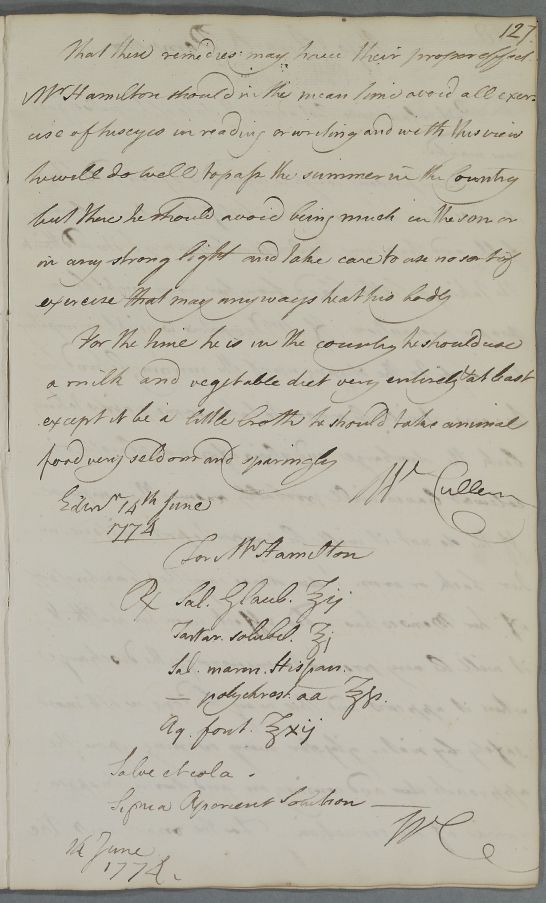 127.
That these remedies may have their proper effect
Mr Hamilton should in the mean time avoid all exer-
cise of his eyes in reading or writing and with this view
he will do well to pass the summer in the Country
but there he should avoid being much in the son or
in any strong light and take care to use no sort of
exercise that may any ways heat his body
For the time he is in the country he should use
a milk and vegetable diet very entirely & at least
except it be a little broth he should take animal
food very seldom and sparingly
Wm Cullen
Edinr 14th June
1774
For Mr Hamilton
℞ Sal. Glaub. ℥ij
Tartar. solubel. ℥j
Sal. marin. Hispan.
— polychrest. aa ℥ß.
Aq. font. ℥xij
Solve et cola.
Signa Aperient Solution —
WC
14 June
1774.